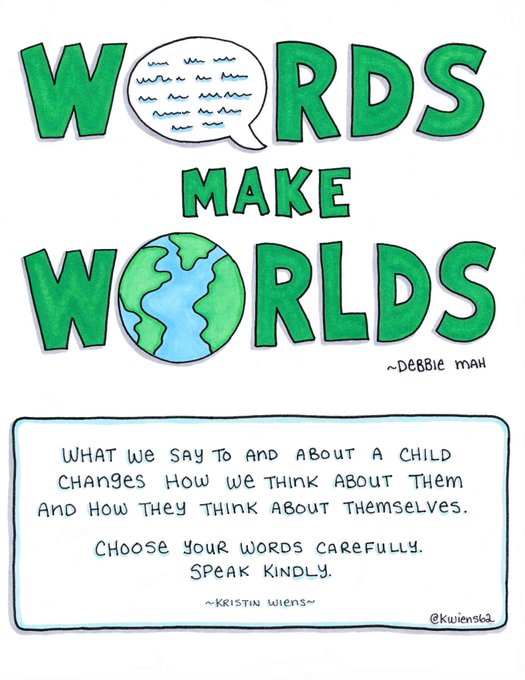 WORDS
MAKE
WORLDS
~DEBBIE MAH
WHAT WE SAY TO AND ABOUT A CHILD
CHANGES HOW WE THINK ABOUT THEM
AND HOW THEY THINK ABOUT THEMSELVES.
CHOOSE YOUR WORDS CAREFULLY.
SPEAK KINDLY.
~KRISTIN WIENS~
@kwiens62